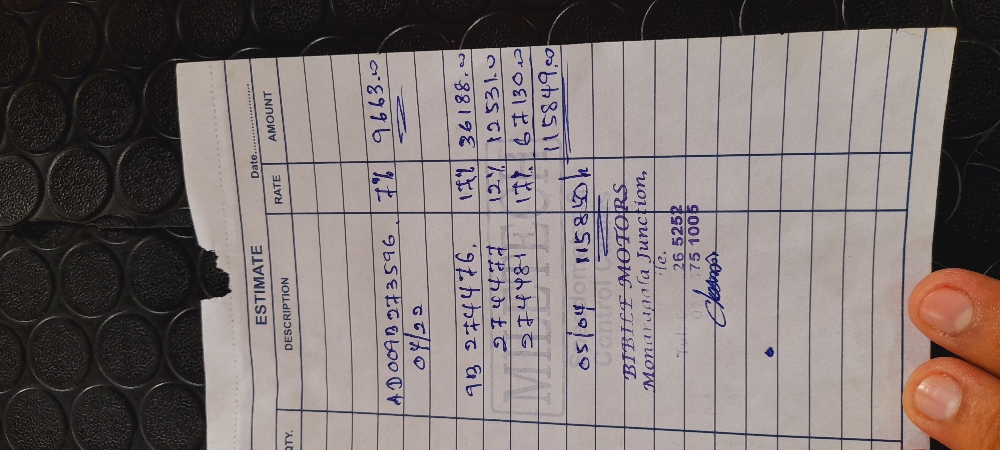 ESTIMATE
Date....................
QTY. DESCRIPTION RATE AMOUNT
AD009B273596. 7% 9663.00
04/22
9B 274476. 17% 36188.00
274477 12% 12531.00
274481 17% 67130.00
115849.00
05/04 115850/=
BIBILE MOTORS
Monaragala Junction,
26 5252
75 1005